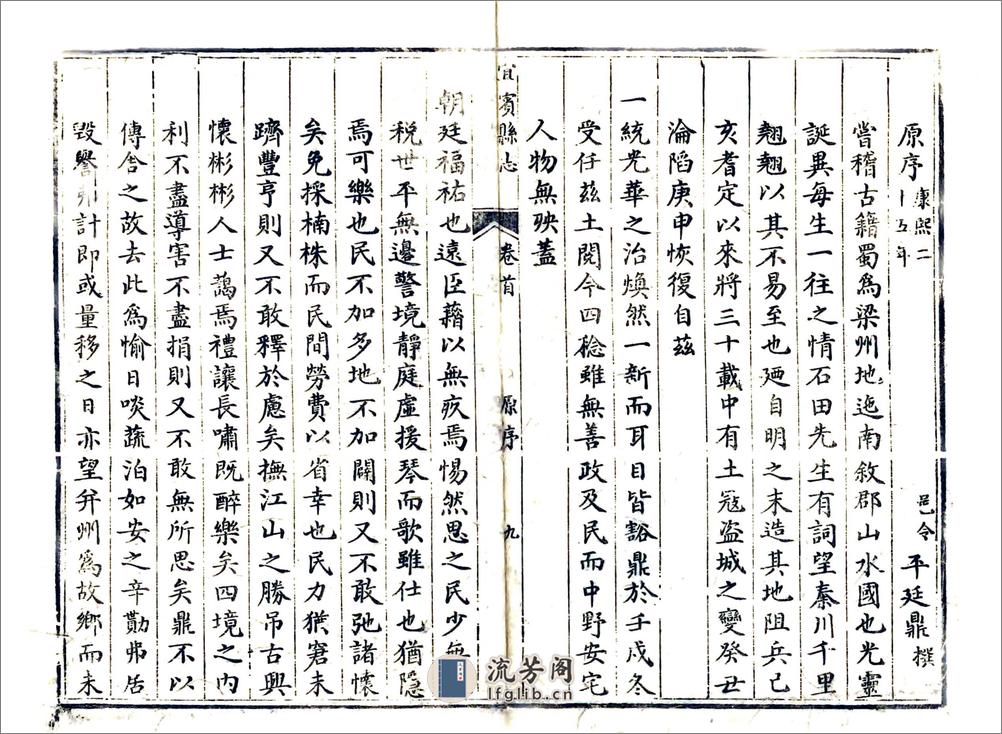 原序 康熙二十五年 邑令 平廷鼎撰
嘗稽古籍蜀爲梁州地迤南敘郡山水國也光靈
誕異每生一往之情石田先生有詞望秦川千里
翹翹以其不易至也廼自明之末造其地阻兵己
亥耆定以來將三十載中有土寇盜城之變癸丑
淪陷庚申恢復自茲
一統光華之治煥然一新而耳目皆豁鼎於壬戌冬
受任茲土閱今四稔雖無善政及民而中野安宅
人物無殃蓋
宜賓縣志 卷首 原序 九
朝廷福祐也遠臣藉以無疚焉惕然思之民少無
稅世平無邊警境靜庭虛援琴而歌雖仕也猶隱
焉可樂也民不加多地不加闢則又不敢弛諸懷
矣免採楠株而民間勞費以省幸也民力猶窘未
躋豐亨則又不敢釋於慮矣撫江山之勝吊古興
懷彬彬人士藹焉禮讓長嘯既醉樂矣四境之內
利不盡導害不盡捐則又不敢無所思矣鼎不以
傳舍之故去此爲愉日啖蔬泊如安之辛勩弗居
毀譽弗計即或量移之日亦望弁州爲故鄉而未
流芳阁
lfglib.cn